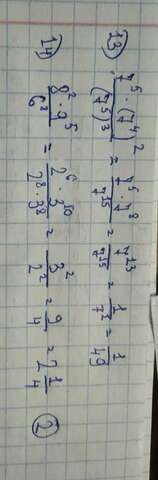 13) 7⁵ · (7⁴)² / (7⁵)³ = 7⁵ · 7⁸ / 7¹⁵ = 7¹³ / 7¹⁵ = 1 / 7² = 1 / 49
14) 8² · 9⁵ / 6⁸ = 2⁶ · 3¹⁰ / 2⁸ · 3⁸ = 3² / 2² = 9 / 4 = 2 1/4
2